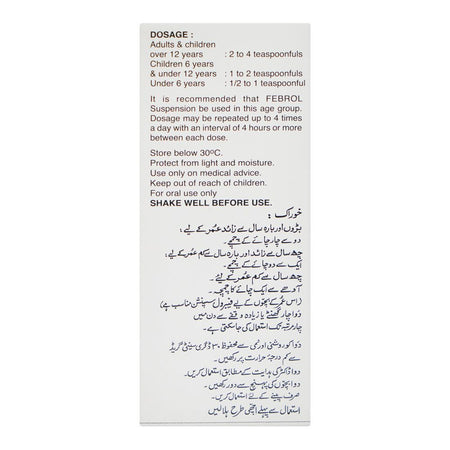 DOSAGE :
Adults & children
over 12 years : 2 to 4 teaspoonfuls
Children 6 years
& under 12 years : 1 to 2 teaspoonfuls
Under 6 years : 1/2 to 1 teaspoonful
It is recommended that FEBROL
Suspension be used in this age group.
Dosage may be repeated up to 4 times
a day with an interval of 4 hours or more
between each dose.
Store below 30ºC.
Protect from light and moisture.
Use only on medical advice.
Keep out of reach of children.
For oral use only
SHAKE WELL BEFORE USE.
خوراک :
بڑوں اور بارہ سال سے زائد عمر کے لیے :
دو سے چار چائے کے چمچے۔
چھ سال سے زائد اور بارہ سال سے کم عمر کے لیے :
ایک سے دو چائے کے چمچے۔
چھ سال سے کم عمر کے لیے :
آدھے سے ایک چائے کا چمچہ۔
(اس عمر کے بچوں کے لیے فیبرول سسپنشن مناسب ہے)
دوا چار گھنٹے یا زیادہ وقفے سے دن میں
چار مرتبہ تک استعمال کی جا سکتی ہے۔
دوا کو روشنی اور نمی سے محفوظ، ۳۰ ڈگری سینٹی گریڈ
سے کم درجۂ حرارت پر رکھیں۔
دوا ڈاکٹر کی ہدایت کے مطابق استعمال کریں۔
دوا بچوں کی پہنچ سے دور رکھیں۔
صرف پینے کے لئے استعمال کریں۔
استعمال سے پہلے اچھی طرح ہلا لیں